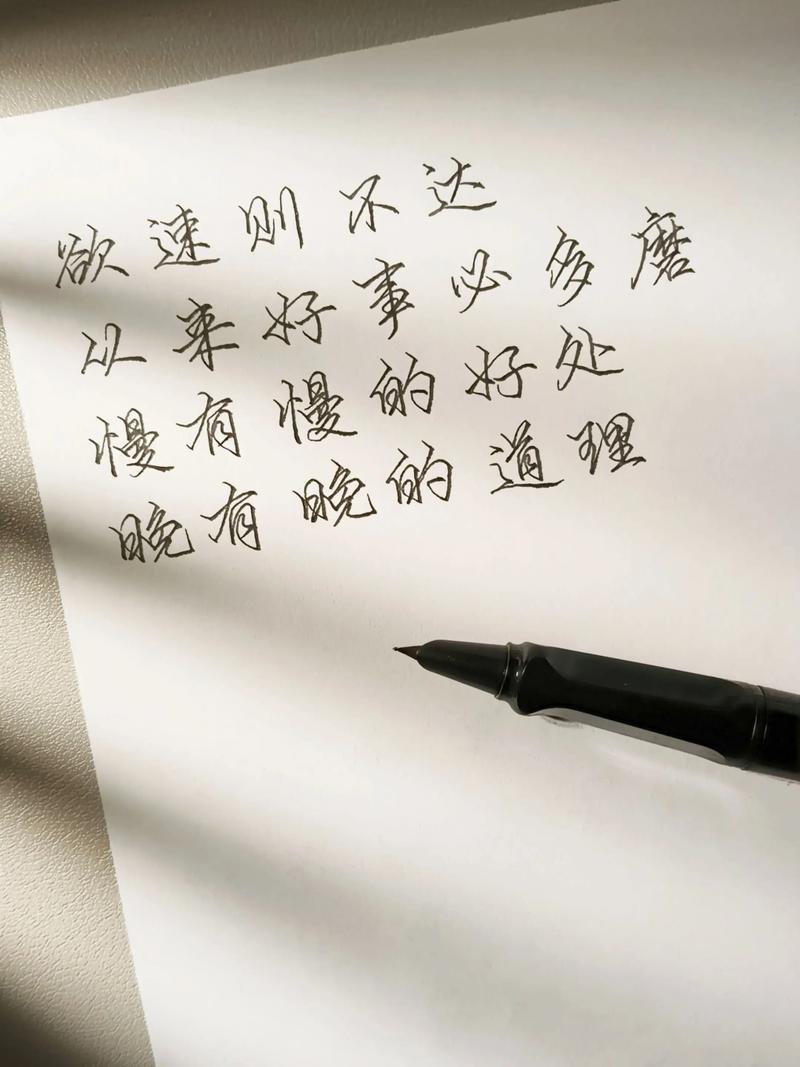 欲速则不达
以来好事必多磨
慢有慢的好处
晚有晚的道理